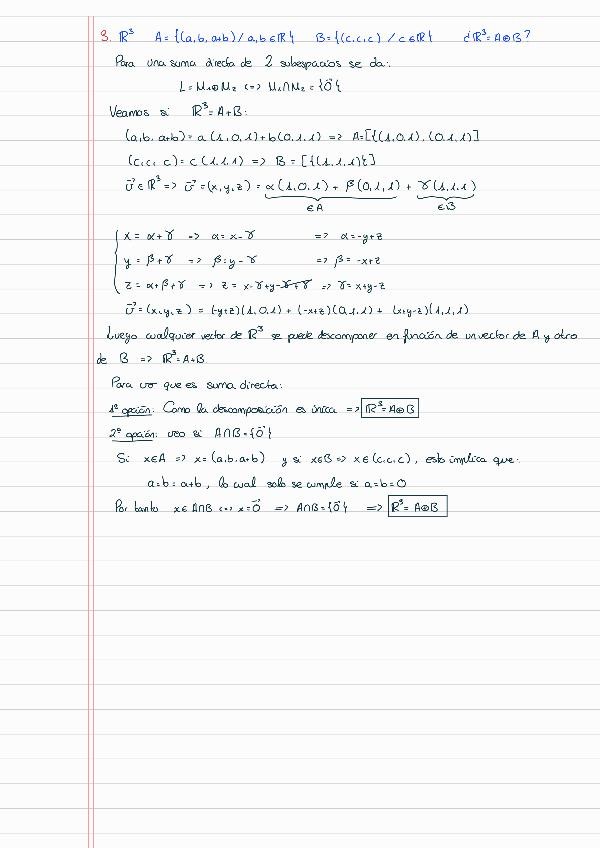 3. ℝ³ A={(a,b,a+b)/a,b∈ℝ} B={(c,c,c)/c∈ℝ} ¿ℝ³=A⊕B?
Para una suma directa de 2 subespacios se da:
L=M₁⊕M₂ <=> M₁∩M₂={0⃗}
Veamos si ℝ³=A+B:
(a,b,a+b)=a(1,0,1)+b(0,1,1) => A=[{(1,0,1),(0,1,1)]
(c,c,c)=c(1,1,1) => B=[{(1,1,1)}]
v⃗∈ℝ³ => v⃗=(x,y,z)=α(1,0,1)+β(0,1,1)+γ(1,1,1)
∈A ∈B
x=α+γ => α=x-γ => α=-y+z
y=β+γ => β=y-γ => β=-x+z
z=α+β+γ => z=x-γ+y-γ+γ => γ=x+y-z
v⃗=(x,y,z)=(-y+z)(1,0,1)+(-x+z)(0,1,1)+(x+y-z)(1,1,1)
Luego cualquier vector de ℝ³ se puede descomponer en función de un vector de A y otro
de B => ℝ³=A+B
Para ver que es suma directa:
1ª opción: Como la descomposición es única => ℝ³=A⊕B
2ª opción: veo si A∩B={0⃗}
Si x∈A => x=(a,b,a+b) y si x∈B => x∈(c,c,c), esto implica que:
a=b=a+b, lo cual solo se cumple si a=b=0
Por tanto x∈A∩B <=> x=0⃗ => A∩B={0⃗} => ℝ³=A⊕B